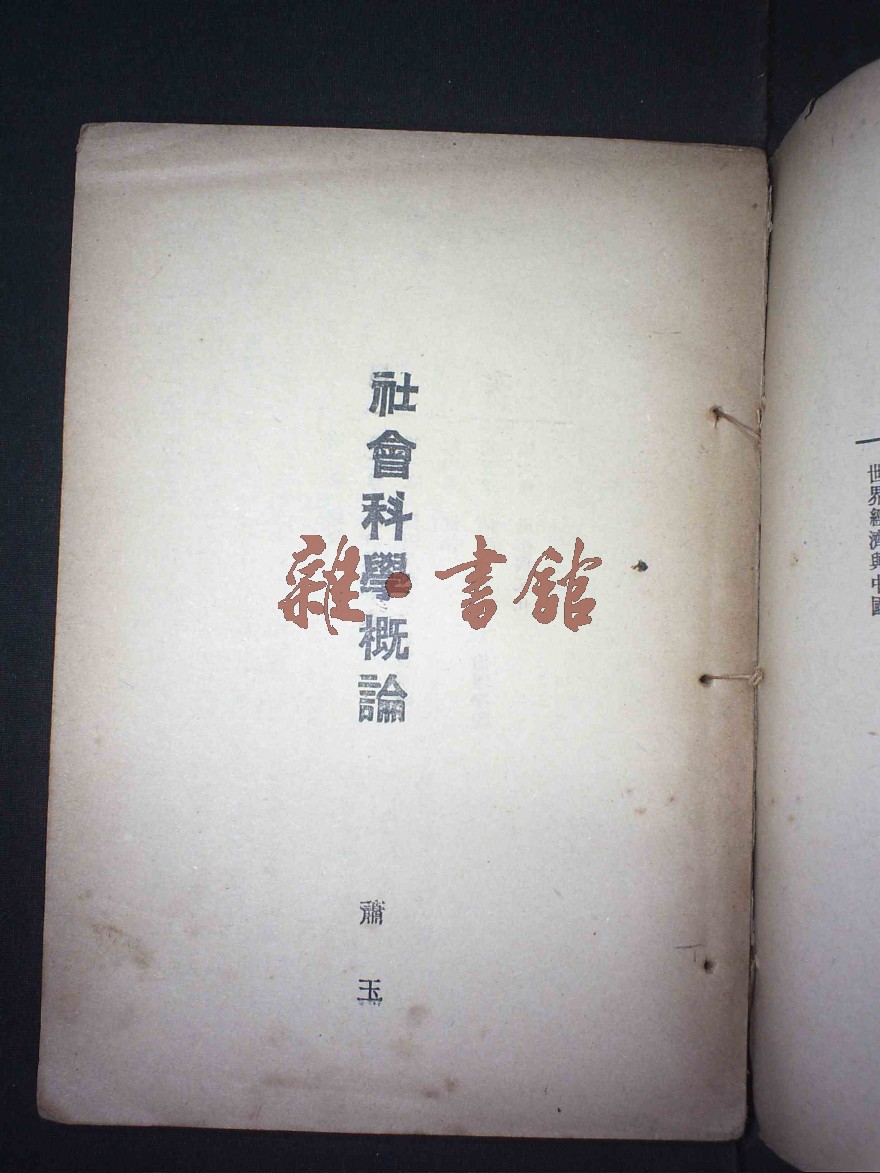 世界經濟與中國
社會科學概論
蕭玉
雜·書館